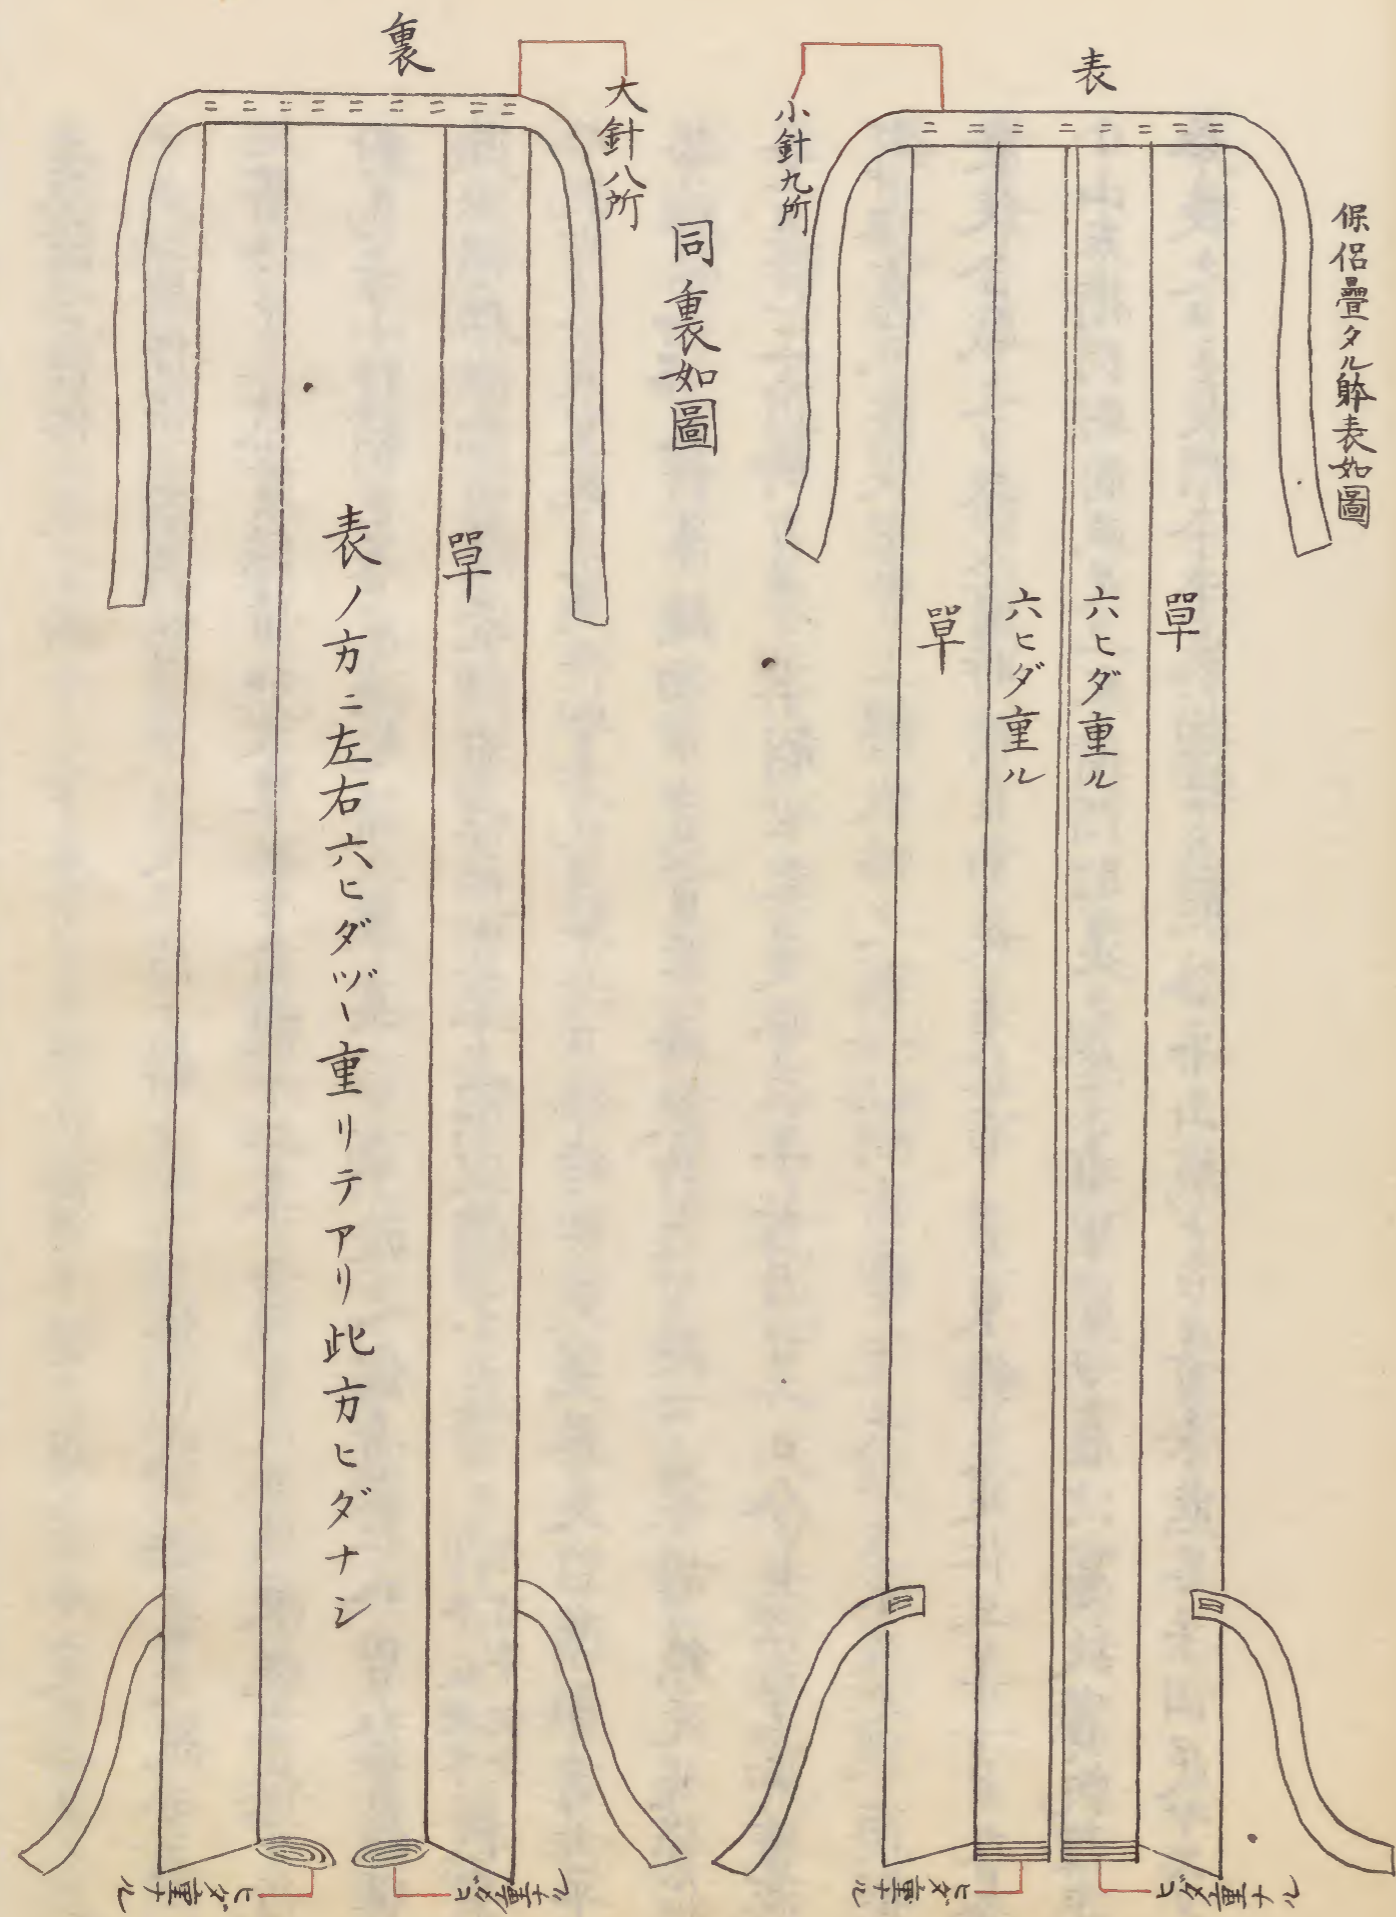 保侶疊タル躰表如圖
表
小針九所
單
六ヒダ重ル
六ヒダ重ル
單
ヒダ重ナル
ヒダ重ナル
同裏如圖
裏
大針八所
單
表ノ方ニ左右六ヒダヅヽ重リテアリ此方ヒダナシ
ヒダ重ナル
ヒダ重ナル